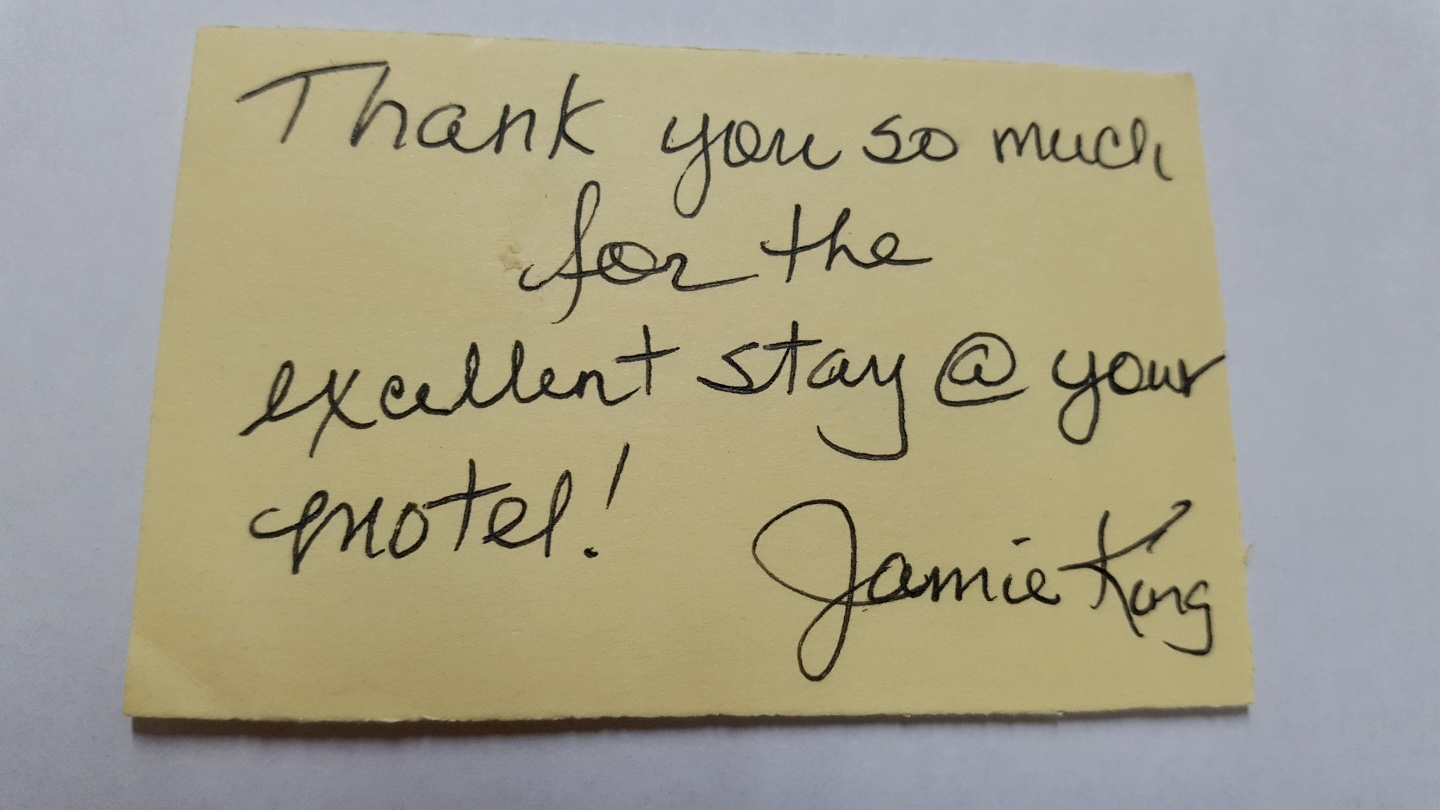 Thank you so much
for the
excellent stay @ your
motel!
Jamie King